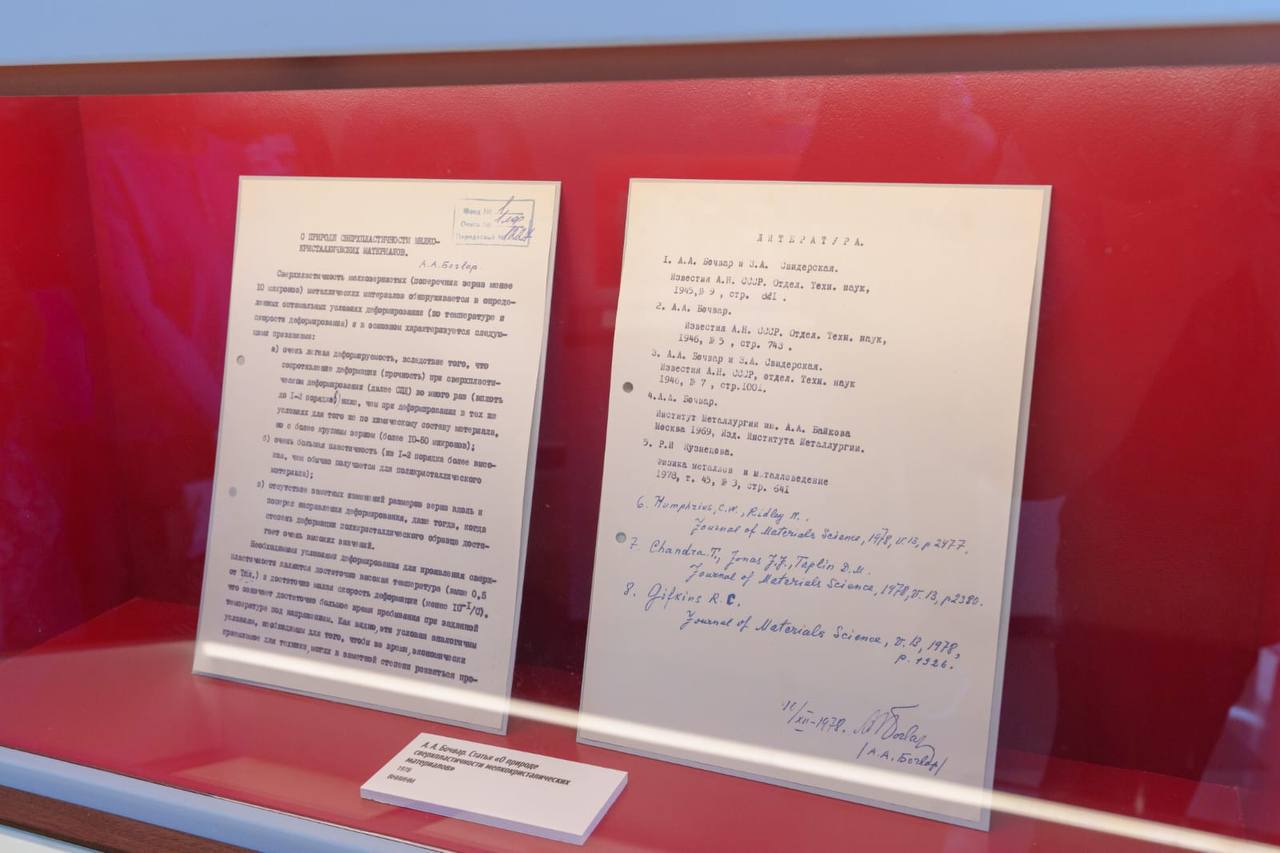 Фонд №
Опись №
Порядковый №
О ПРИРОДЕ СВЕРХПЛАСТИЧНОСТИ МЕЛКО-
КРИСТАЛЛИЧЕСКИХ МАТЕРИАЛОВ.
А.А.Бочвар.
Сверхпластичность мелкозернистых (поперечник зерна менее
10 микронов) металлических материалов обнаруживается в опреде-
ленных оптимальных условиях деформирования (по температуре и
скорости деформирования) и в основном характеризуется следую-
щими признаками:
а) очень легкая деформируемость, вследствие того, что
сопротивление деформации (прочность) при сверхпласти-
ческом деформировании (далее СПД) во много раз (вплоть
до 1-2 порядков) ниже, чем при деформировании в тех же
условиях для того же по химическому составу материала,
но с более крупным зерном (более 10-50 микронов);
б) очень большая пластичность (на 1-2 порядка более высо-
кая, чем обычно получается для поликристаллического
материала);
в) отсутствие заметных изменений размеров зерна вдоль и
поперек направления деформирования, даже тогда, когда
степень деформации поликристаллического образца дости-
гает очень высоких значений.
Необходимыми условиями деформирования для проявления сверх-
пластичности являются достаточно высокая температура (выше 0,5
от Тпл.) и достаточно малая скорость деформации (менее 10⁻¹/с),
что означает достаточно большое время пребывания при заданной
температуре под напряжением. Как видно, эти условия аналогичны
условиям, необходимым для того, чтобы во время, экономически
приемлемое для техники, могли в заметной степени развиться про-
ЛИТЕРАТУРА.
1. А.А. Бочвар и З.А. Свидерская.
Известия А.Н. СССР. Отдел. Техн. наук,
1945, № 9 , стр. 821 .
2. А.А. Бочвар.
Известия А.Н. СССР. Отдел. Техн. наук,
1946, № 5 , стр. 743 .
3. А.А. Бочвар и З.А. Свидерская.
Известия А.Н. СССР, отдел. Техн. наук
1946, № 7 , стр.1001.
4.А.А. Бочвар.
Институт Металлургии им. А.А. Байкова
Москва 1969, Изд. Института Металлургии.
5. Р.И Кузнецова.
Физика металлов и металловедение
1978, т. 45, № 3, стр. 641
6. Humphries, C.W., Ridley N.
Journal of Materials Science, 1978, V.13, p 2477.
7. Chandra T., Jonas J.J., Taplin D.M.
Journal of Materials Science, 1978, V. 13, p 2380.
8. Gifkins R.C.
Journal of Materials Science, V. 13, 1978,
p. 1926.
12/XII-1978. АБочвар
/А.А.Бочвар/
А. А. Бочвар. Статья «О природе
сверхпластичности мелкокристалических
материалов»
1978
ВНИИНМ